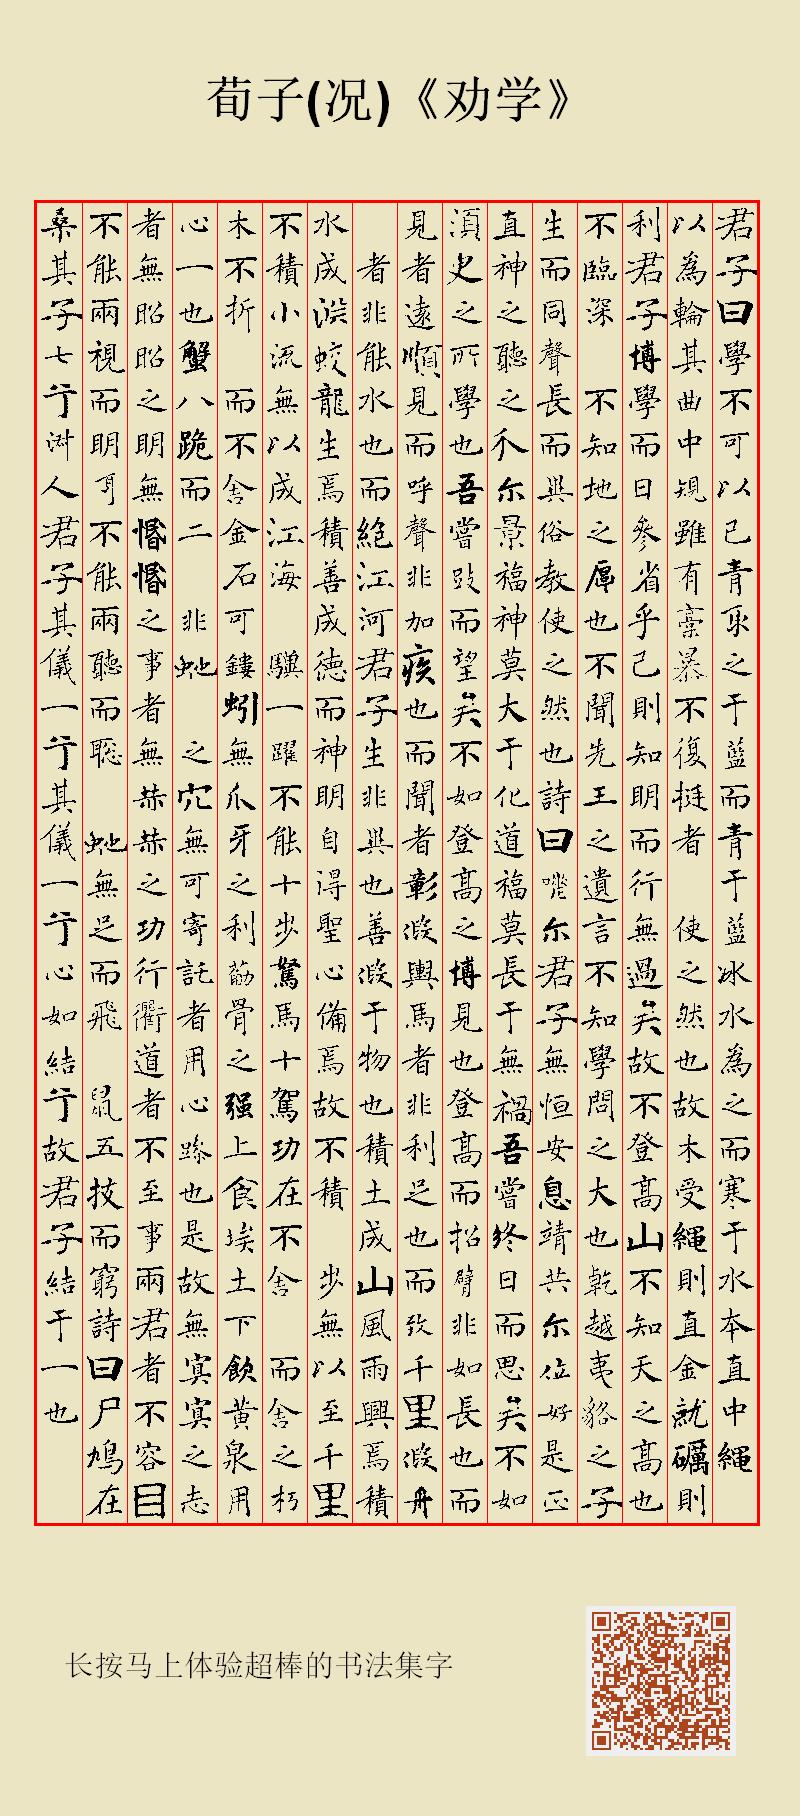 荀子(况)《劝学》
君子曰學不可以已青取之于藍而青于藍冰水為之而寒于水本直中繩
以為輪其曲中規雖有槀暴不復挺者 使之然也故木受繩則直金就礪則
利君子博學而日參省乎己則知明而行無過矣故不登高山不知天之高也
不臨深 不知地之厚也不聞先王之遺言不知學問之大也乾越夷貉之子
生而同聲 長而異俗教使之然也詩曰嗟尔君子無恒安息靖共尔位好是正
直神之聽之介尔景福神莫大于化道福莫長于無禍吾嘗終日而思矣不如
須臾之所學也吾嘗跂而望矣不如登高之博見也登高而招臂非如長也而
見者遠順見而呼聲非加疾也而聞者彰假輿馬者非利足也而致千里假舟
者非能水也而絕江河君子生非異也善假于物也積土成山風雨興焉積
水成淵蛟龍生焉積善成德而神明自得聖心備焉故不積 步無以至千里
不積小流無以成江海 騏一躍不能十步駑馬十駕功在不舍 而舍之朽
木不折 而不舍金石可鏤蚓無爪牙之利筋骨之强上食埃土下飲黃泉用
心一也蟹八跪而二 非蛇 之穴無可寄託者用心躁也是故無冥冥之志
者無昭昭之明無惛惛之事者無赫赫之功行衢道者不至事兩君者不容目
不能兩視而明耳不能兩聽而聰 蛇無足而飛 鼠五技而窮詩曰尸鳩在
桑其子七兮淑人君子其儀一兮其儀一兮心如結兮故君子結于一也
长按马上体验超棒的书法集字